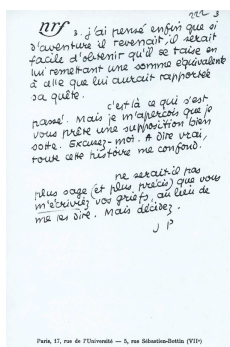 nrf
3
3. j'ai pensé enfin que si
d'aventure il revenait, il serait
facile d'obtenir qu'il se taise en
lui remettant une somme équivalente
à celle que lui aurait rapportée
sa quête.
c'est là ce qui s'est
passé. Mais je m'aperçois que je
vous prête une supposition bien
sotte. Excusez-moi. A dire vrai,
toute cette histoire me confond.
ne serait-il pas
plus sage (et plus précis) que vous
m'écriviez vos griefs, au lieu de
me les dire. Mais décidez.
J P
Paris, 17, rue de l'Université — 5, rue Sébastien-Bottin (VIIe)